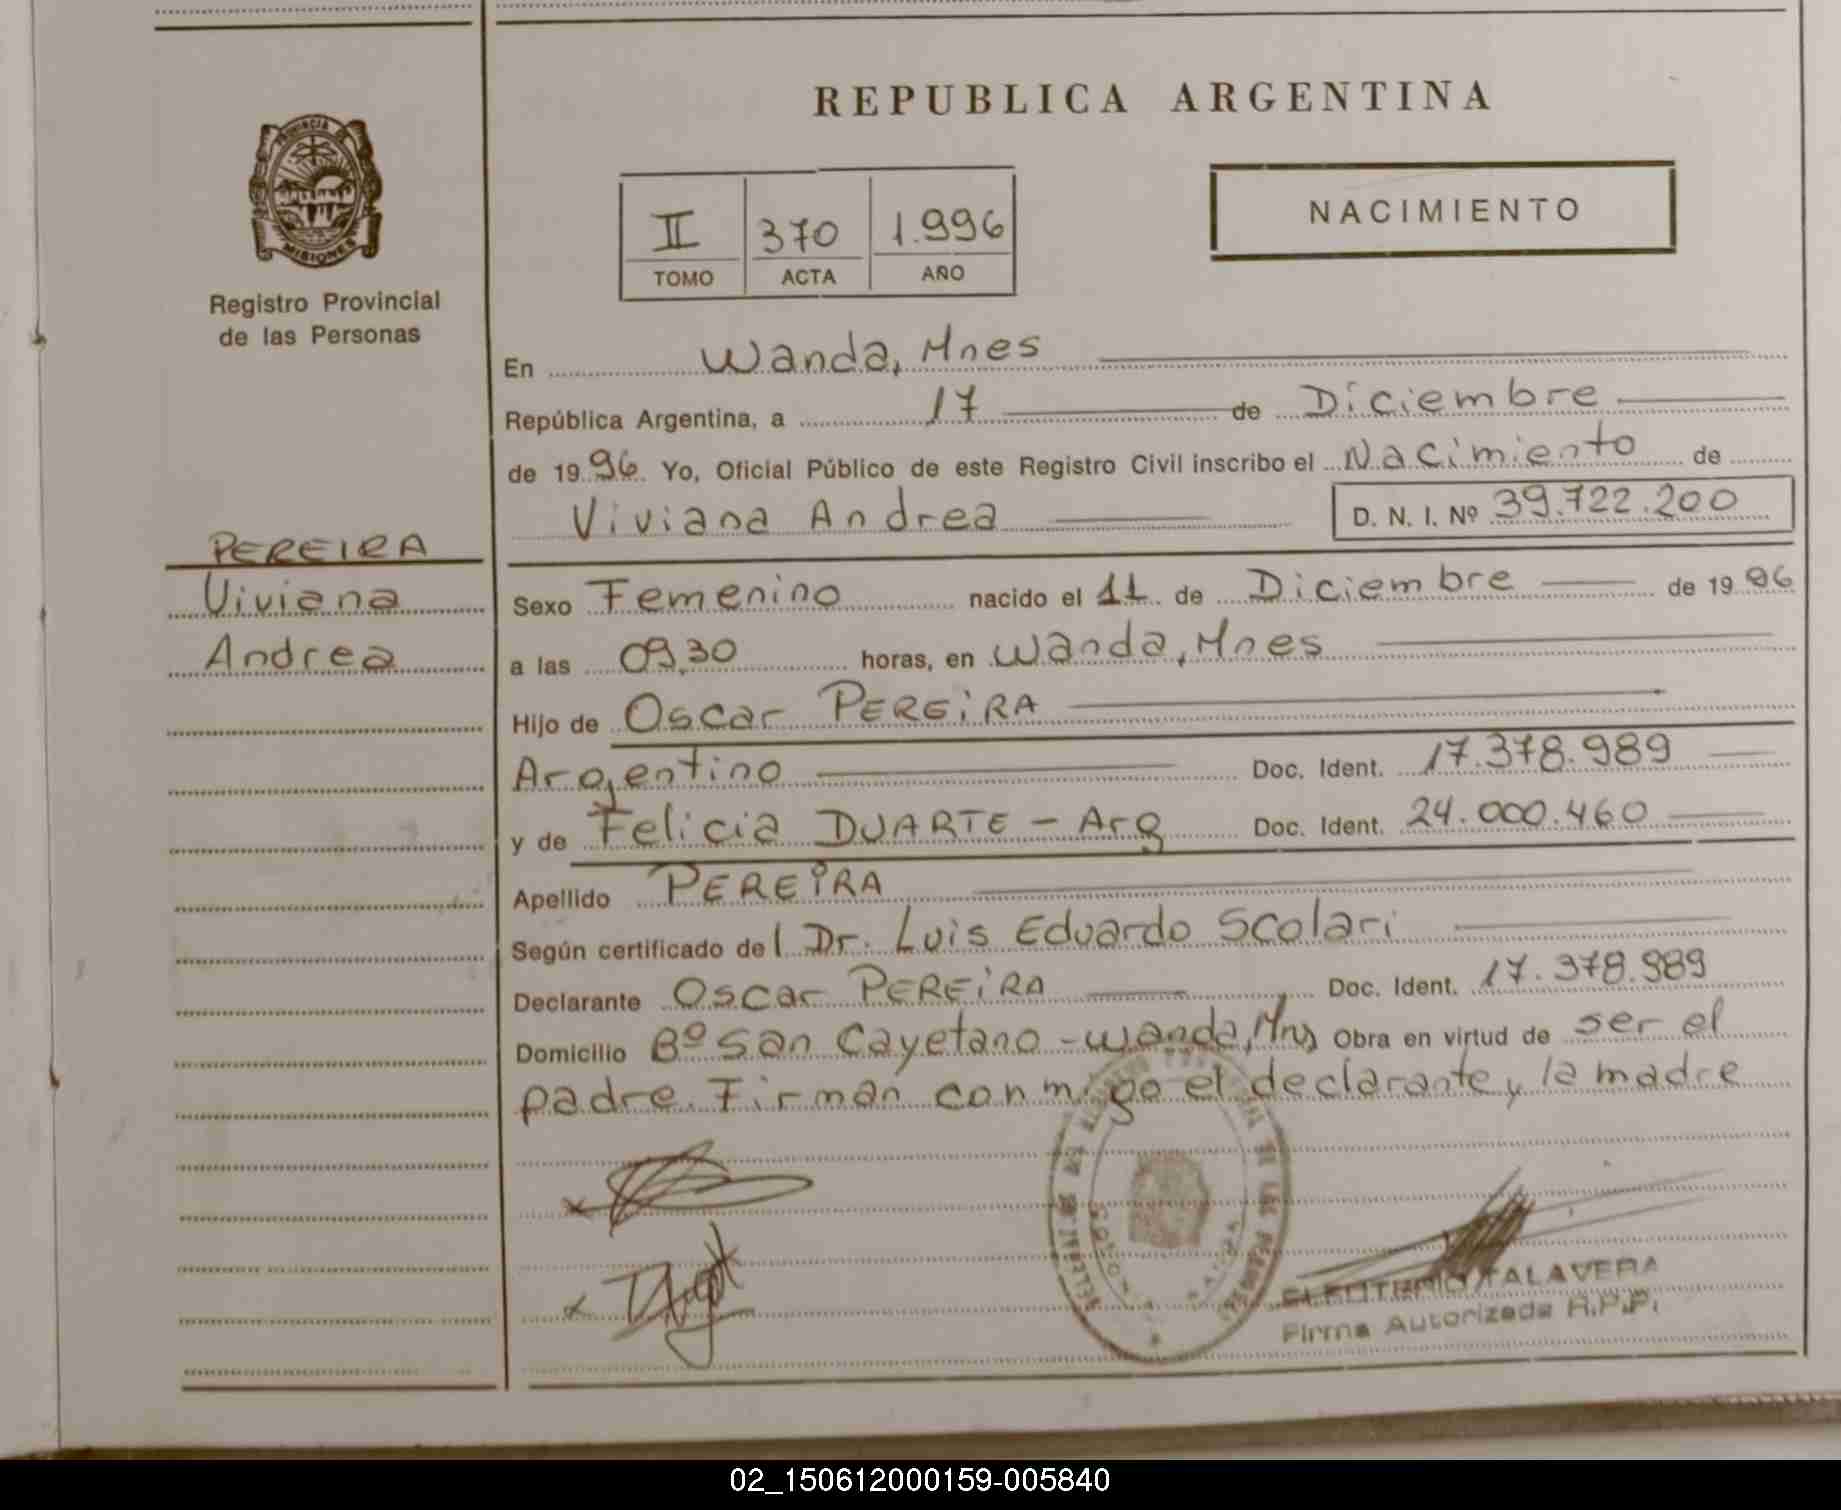 REPUBLICA ARGENTINA
PROVINCIA DE
MISIONES
Registro Provincial
de las Personas
II 370 1.996
TOMO ACTA AÑO
NACIMIENTO
En Wanda, Mnes
República Argentina, a 17 de Diciembre
de 1996 Yo, Oficial Público de este Registro Civil inscribo el Nacimiento de
Viviana Andrea D. N. I. Nº 39.722.200
PEREIRA
Viviana
Andrea
Sexo Femenino nacido el 11 de Diciembre de 1996
a las 09,30 horas, en Wanda, Mnes
Hijo de Oscar PEREIRA
Argentino Doc. Ident. 17.378.989
y de Felicia DUARTE - Arg Doc. Ident. 24.000.460
Apellido PEREIRA
Según certificado del Dr. Luis Eduardo Scolari
Declarante Oscar PEREIRA Doc. Ident. 17.378.989
Domicilio Bº San Cayetano - Wanda, Mns Obra en virtud de ser el
padre. Firman conmigo el declarante y la madre
ELEUTERIO TALAVERA
Firma Autorizada R.P.P.
02_150612000159-005840